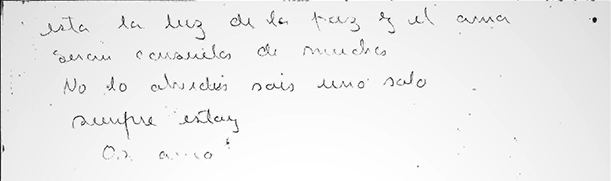 esta la luz de la paz y el ama
seran consuelos de muchos
No lo olvideis sois uno solo
siempre estoy
Os amo